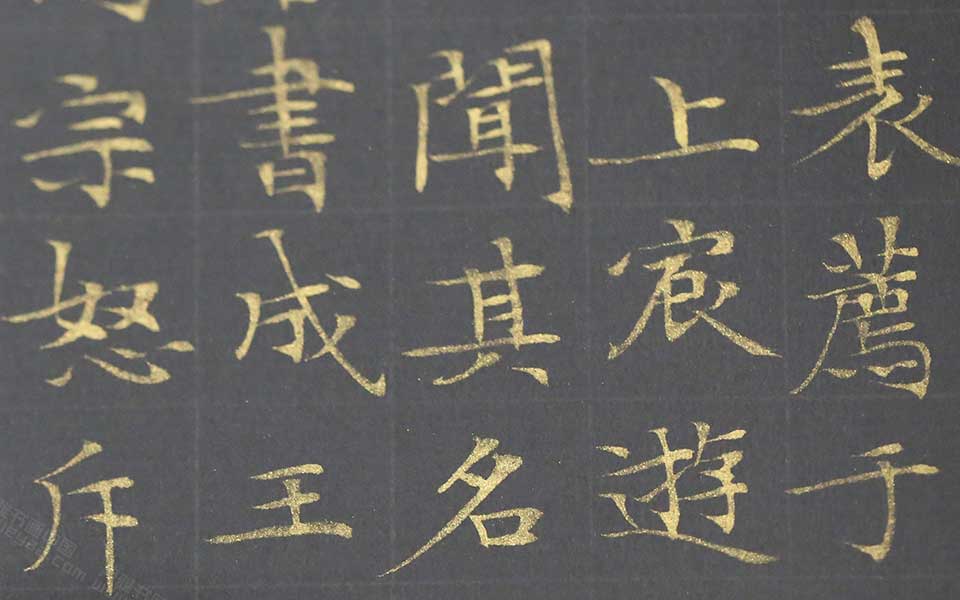 表薦于
上宸遊
聞其名
書成王
宗怒斥